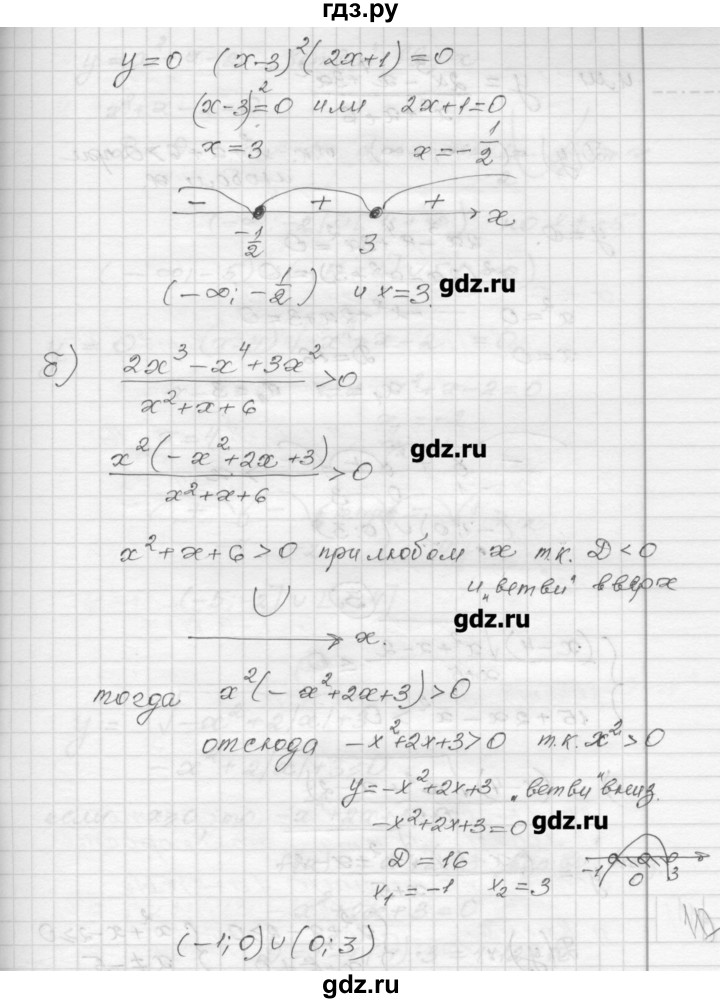 гдз.ру
y=0 (x-3)²(2x+1)=0
(x-3)²=0 или 2x+1=0
x=3 x=-1/2
- + + x
-1/2 3
(-∞; -1/2) и x=3.
gdz.ru
б) (2x³-x⁴+3x²)/(x²+x+6)>0
(x²(-x²+2x+3))/(x²+x+6)>0
gdz.ru
x²+x+6>0 при любом x т.к. D<0
и "ветви" вверх
gdz.ru
x.
тогда x²(-x²+2x+3)>0
отсюда -x²+2x+3>0 т.к. x²>0
y=-x²+2x+3 "ветви" вниз.
-x²+2x+3=0
gdz.ru
D=16
-1 0 3
x₁=-1 x₂=3
(-1;0)∪(0;3)
gdz.ru
gdz.ru